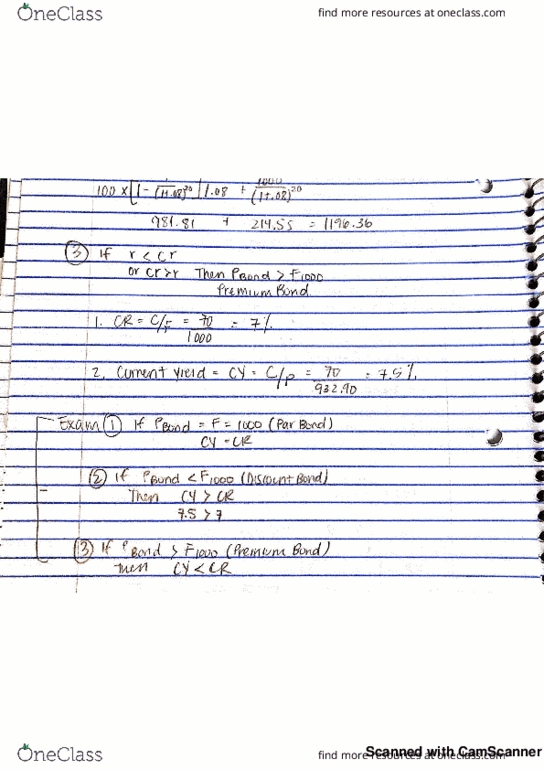 OneClass
find more resources at oneclass.com
100 x [1 - 1/(1+.08)^20] / .08 + 1000/(1+.08)^20
981.81 + 214.55 = 1196.36
③ If r < Cr
or Cr > r Then PBond > F1000
Premium Bond
1. CR = C/F = 70/1000 = 7%
2. Current Yield = CY = C/P = 70/932.90 = 7.5%
Exam ① If PBond = F = 1000 (Par Bond)
CY = CR
② If PBond < F1000 (Discount Bond)
Then CY > CR
7.5 > 7
③ If PBond > F1000 (Premium Bond)
Then CY < CR
Scanned with CamScanner
OneClass
find more resources at oneclass.com